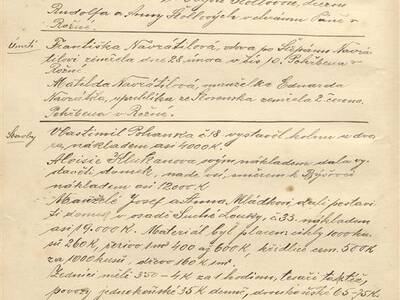 Rudolfa a Anny
Rožné.
Úmrtí Františka Navrátilová, vdova po Štěpánu Navrá-
tilovi zemřela dne 28. února v čís 10. Pohřbena v
Rožné.
Matilda Navrátilová, manželka Eduarda
Navrátila, ze Slovenska zemřela 2. června.
Pohřbena v Rožné.
Stavby Vlastimil Pohanka č 18 vystavěl kolnu u dvo-
ra, nákladem asi 4000 K.
Aloisie Klukanova svým nákladem dala vy-
domek, nade vsí, směrem k Býšovci
nákladem asi 12000 K.
Manželé Josef a Anna Mládkovi dali postavi-
ti domek v osadě Suché Louky, č. 33. nákladem
asi 19.000 K. Materiál byl placen: cihly 1000 ku-
sů 260 K, 1 m³ 400 až 600 K, křidlice cem. 500 K
za 1000 kusů, dřevo 160 K 1m³.
Zedníci měli 3.50 - 4 K za 1 hodinu, tesaři taktéž,
povozy jednokoňské 35 K denně, dvoukoňské 65-75 K.